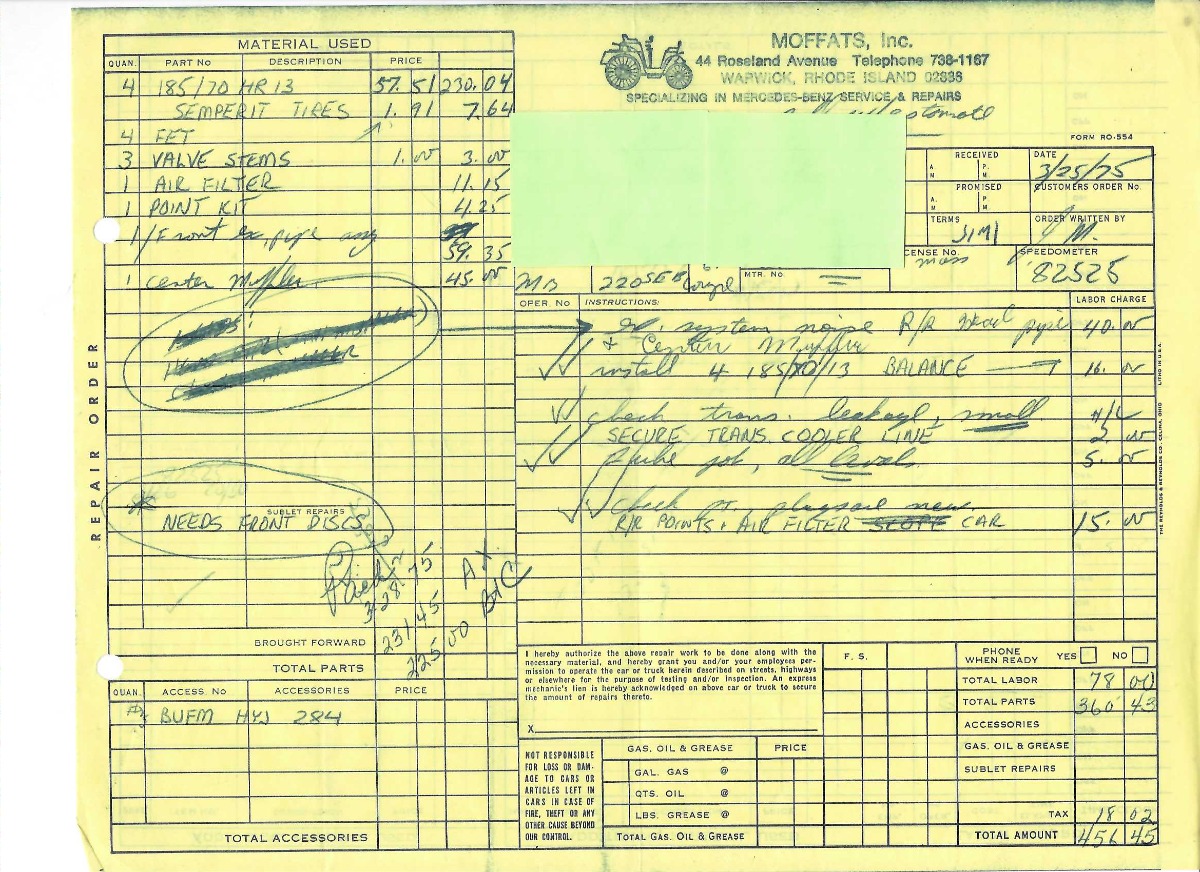 MATERIAL USED
QUAN. PART No DESCRIPTION PRICE
4 185/70 HR 13 57.51 230.04
SEMPERIT TIRES 1.91 7.64
4 FET
3 VALVE STEMS 1.00 3.00
1 AIR FILTER 11.15
1 POINT KIT 4.25
1 Front ex, pipe
59.35
1 center Muffler 45.00
REPAIR ORDER
SUBLET REPAIRS
* NEEDS FRONT DISCS
3/28.75
231.45
225.00
BROUGHT FORWARD
TOTAL PARTS
QUAN. ACCESS. No ACCESSORIES PRICE
BUFM HYJ 284
TOTAL ACCESSORIES
MOFFATS, Inc.
44 Roseland Avenue Telephone 738-1167
WARWICK, RHODE ISLAND 02886
SPECIALIZING IN MERCEDES-BENZ SERVICE & REPAIRS
FORM RO-554
RECEIVED
A. M P. M.
DATE
3/25/75
PROMISED
A. M P. M.
CUSTOMERS ORDER No.
TERMS
JIMI
ORDER WRITTEN BY
J M.
CENSE No.
mass
SPEEDOMETER
82525
MB 220SEB Coupe
MTR. No
OPER. No INSTRUCTIONS: LABOR CHARGE
system noise R/R pipe 40.00
& Center Muffler
install 4 185/70/13 BALANCE 16.00
check trans. leakage, small N/C
SECURE TRANS. COOLER LINE 2.00
job, all levels 5.00
check
R/R POINTS + AIR FILTER CAR 15.00
LITHO IN U.S.A.
THE REYNOLDS & REYNOLDS CO., CELINA, OHIO
I hereby authorize the above repair work to be done along with the
necessary material, and hereby grant you and/or your employees per-
mission to operate the car or truck herein described on streets, highways
or elsewhere for the purpose of testing and/or inspection. An express
mechanic's lien is hereby acknowledged on above car or truck to secure
the amount of repairs thereto.
X
NOT RESPONSIBLE
FOR LOSS OR DAM-
AGE TO CARS OR
ARTICLES LEFT IN
CARS IN CASE OF
FIRE, THEFT OR ANY
OTHER CAUSE BEYOND
OUR CONTROL.
GAS, OIL & GREASE PRICE
GAL. GAS @
QTS. OIL @
LBS. GREASE @
TOTAL GAS, OIL & GREASE
F. S.
PHONE WHEN READY YES NO
TOTAL LABOR 78 00
TOTAL PARTS 360 43
ACCESSORIES
GAS, OIL & GREASE
SUBLET REPAIRS
TAX 18 02
TOTAL AMOUNT 456 45